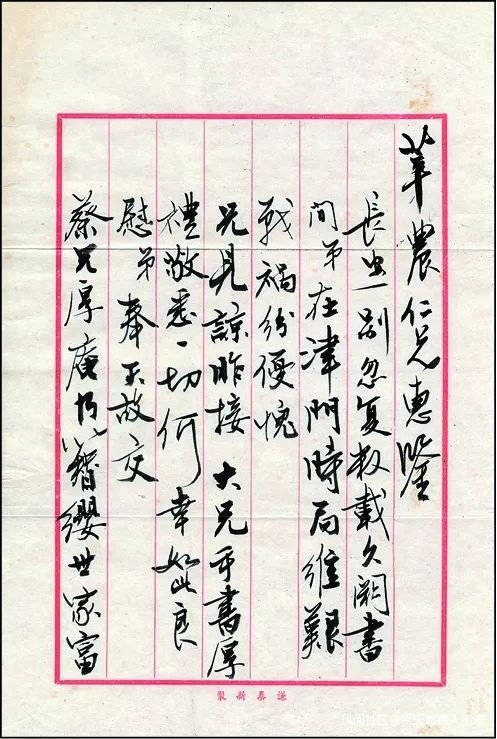 華農仁兄惠鑒
長出一別忽复数載久闊書
问弟在津門時局維艱
戰禍纷優愧
兄見諒昨接大兄手書厚
禮敬悉一切何幸如此良
慰弟奉天故交
蔡兄厚庵乃簪纓世家富
謙泰新製